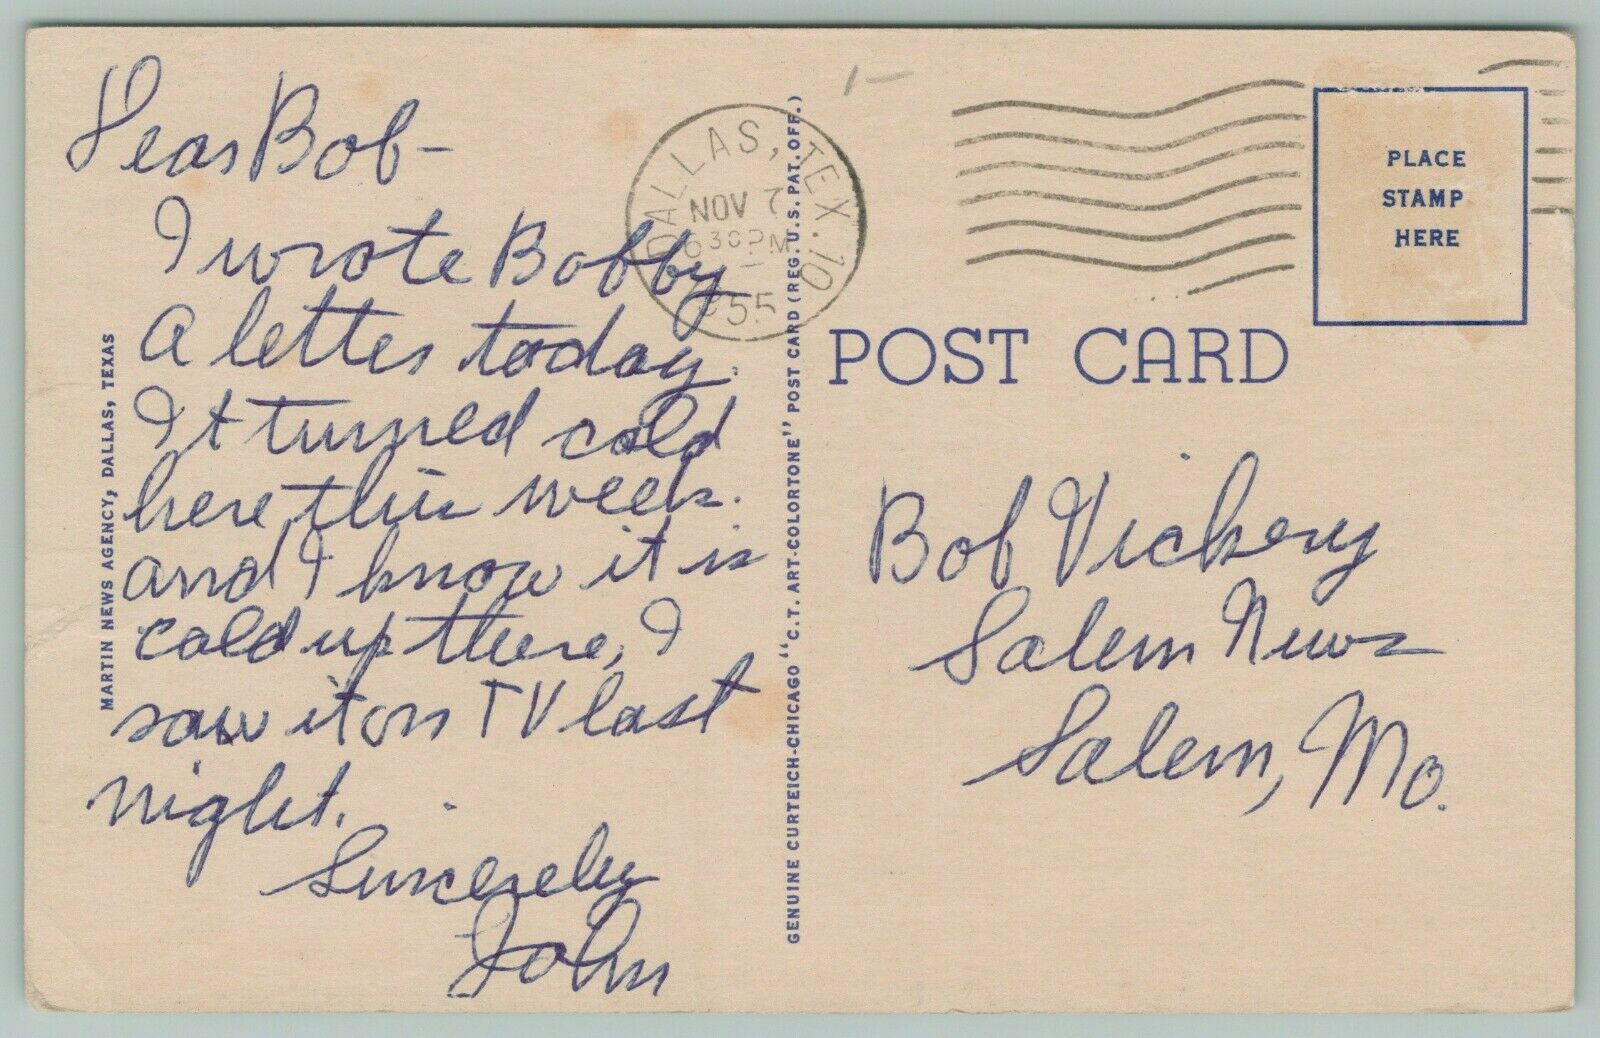 Dear Bob-
I wrote Bobby
a letter today.
It turned cold
here, this week.
and I know it is
cold up there, I
saw it on TV last
night.
Sincerely
John
MARTIN NEWS AGENCY, DALLAS, TEXAS
DALLAS, TEX. 10
NOV 7
6 30 PM
1955
GENUINE CURTEICH-CHICAGO "C.T. ART-COLORTONE" POST CARD (REG. U.S. PAT. OFF.)
PLACE
STAMP
HERE
POST CARD
Bob Vickery
Salem News
Salem, Mo.